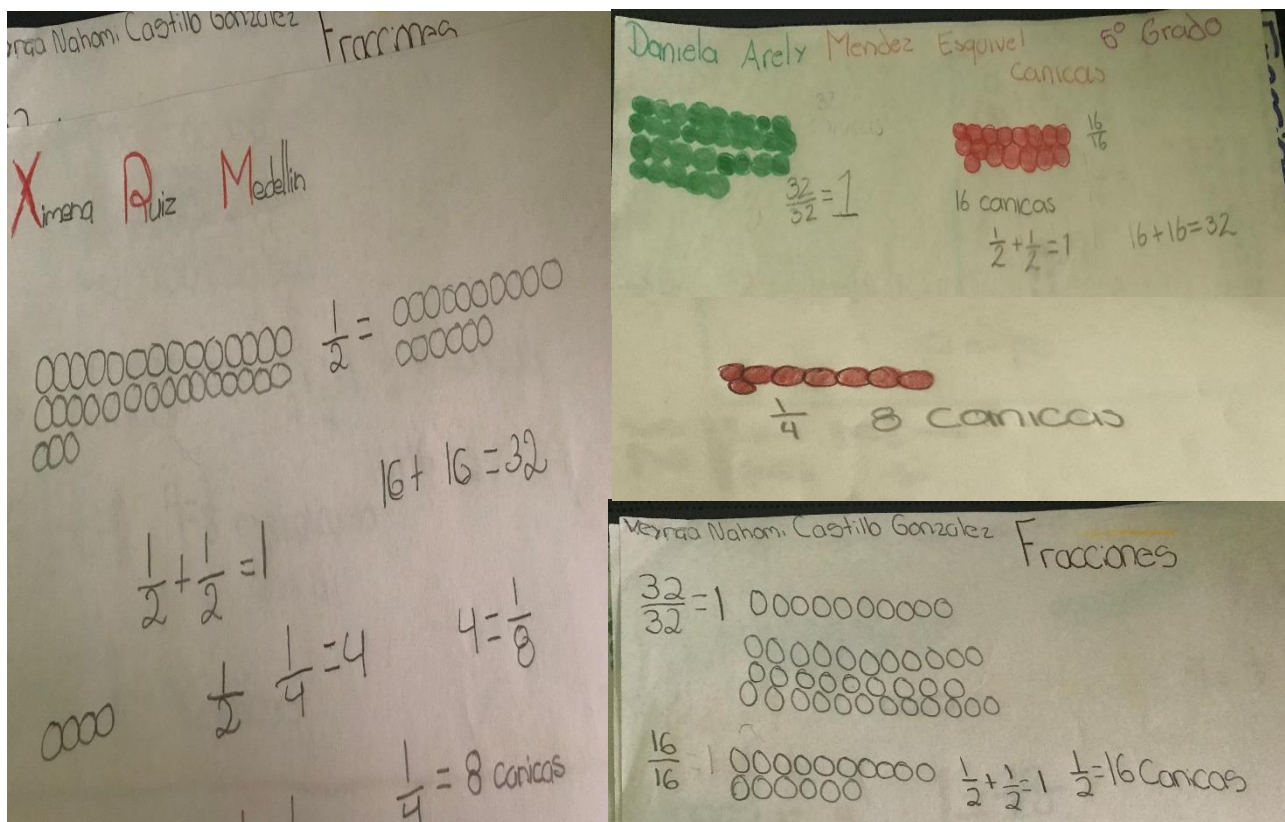 Nahomi Castillo González
Fracciones
Ximena Ruiz Medellin
1/2 =
16 + 16 = 32
1/2 + 1/2 = 1
4 = 1/8
1/2 1/4 = 4
1/4 = 8 canicas
Daniela Arely Mendez Esquivel 5º Grado
canicas
16/16
32/32 = 1
16 canicas
1/2 + 1/2 = 1
16 + 16 = 32
1/4 8 canicas
Nahomi Castillo González
Fracciones
32/32 = 1
16/16 1
1/2 + 1/2 = 1 1/2 = 16 Canicas